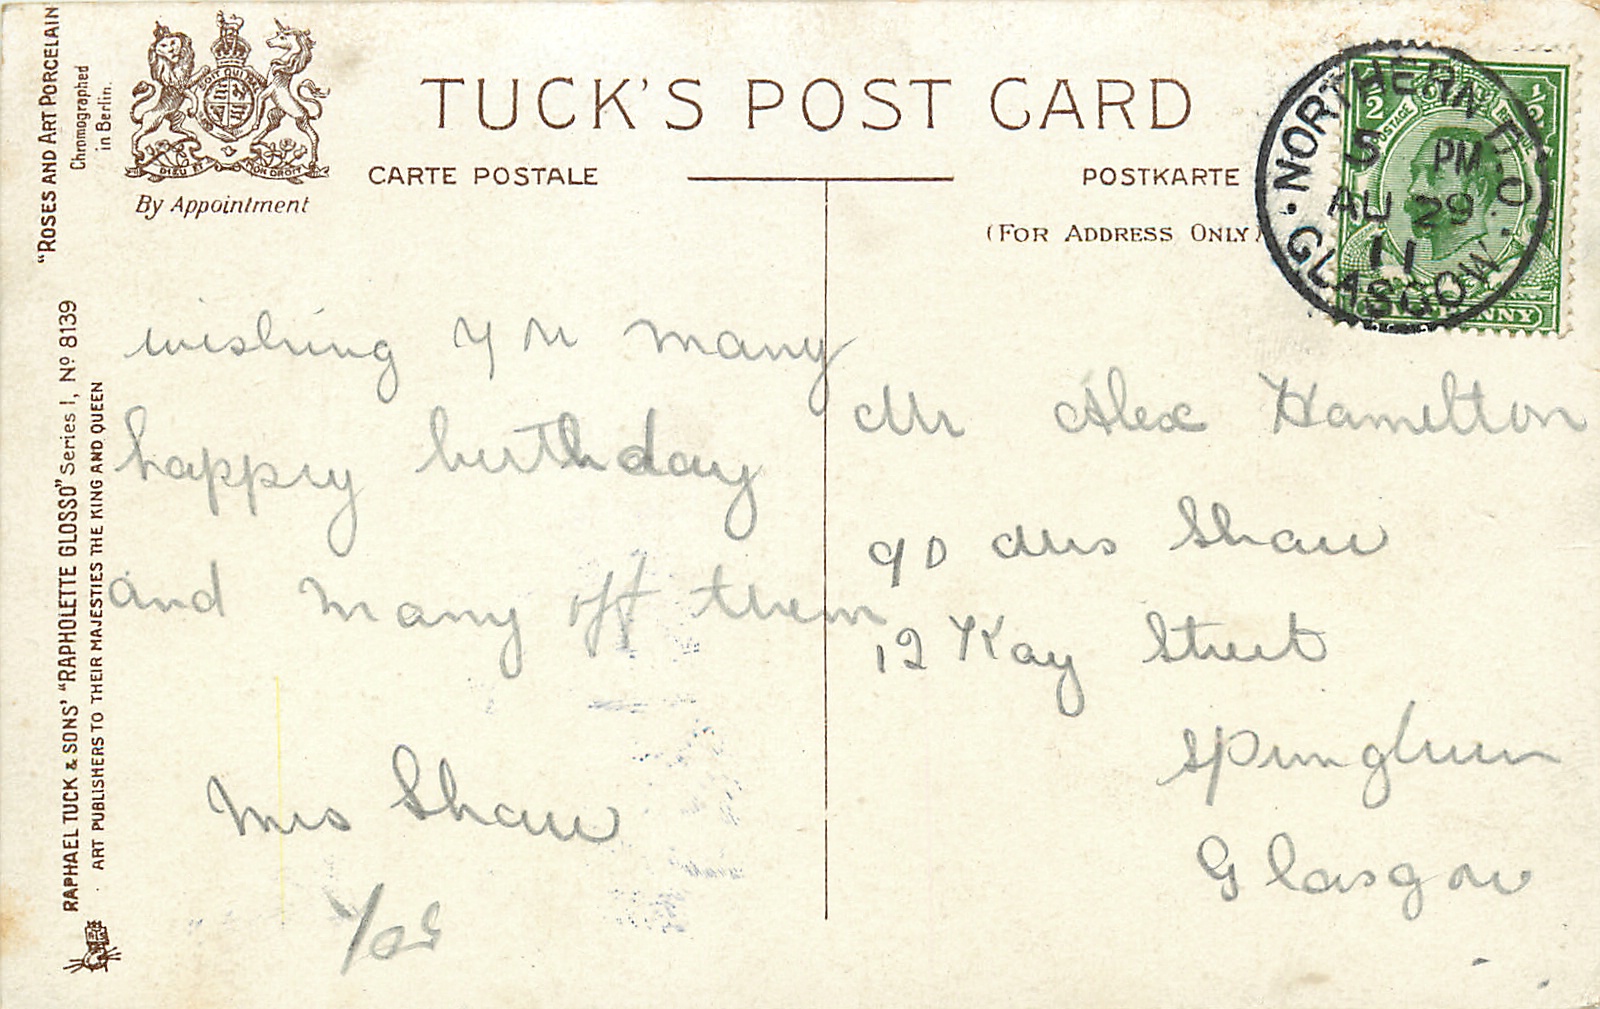 TUCK'S POST CARD
CARTE POSTALE
POSTKARTE
(FOR ADDRESS ONLY)
By Appointment
DIEU ET MON DROIT
"ROSES AND ART PORCELAIN
Chromographed
in Berlin.
RAPHAEL TUCK & SONS' "RAPHOLETTE GLOSSO" Series I, Nº 8139
ART PUBLISHERS TO THEIR MAJESTIES THE KING AND QUEEN
NORTHERN B.O.
5 PM
AU 29
11
GLASGOW
1/2 1/2
POSTAGE
PENNY
wishing y u many
happry birthday
and many off them
Mrs Shaw
Mr Alex Hamilton
Mrs Shaw
12 Kay Street
Springburn
Glasgow